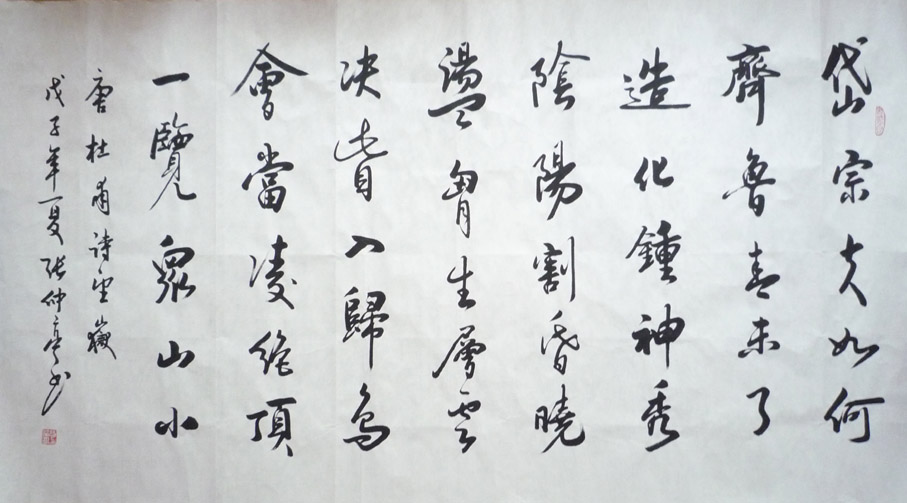 岱宗夫如何
齊魯青未了
造化鍾神秀
陰陽割昏曉
盪胷生層雲
决眥入歸鳥
會當凌絶頂
一覽衆山小
唐杜甫詩望嶽
戊子年夏張仲亭书